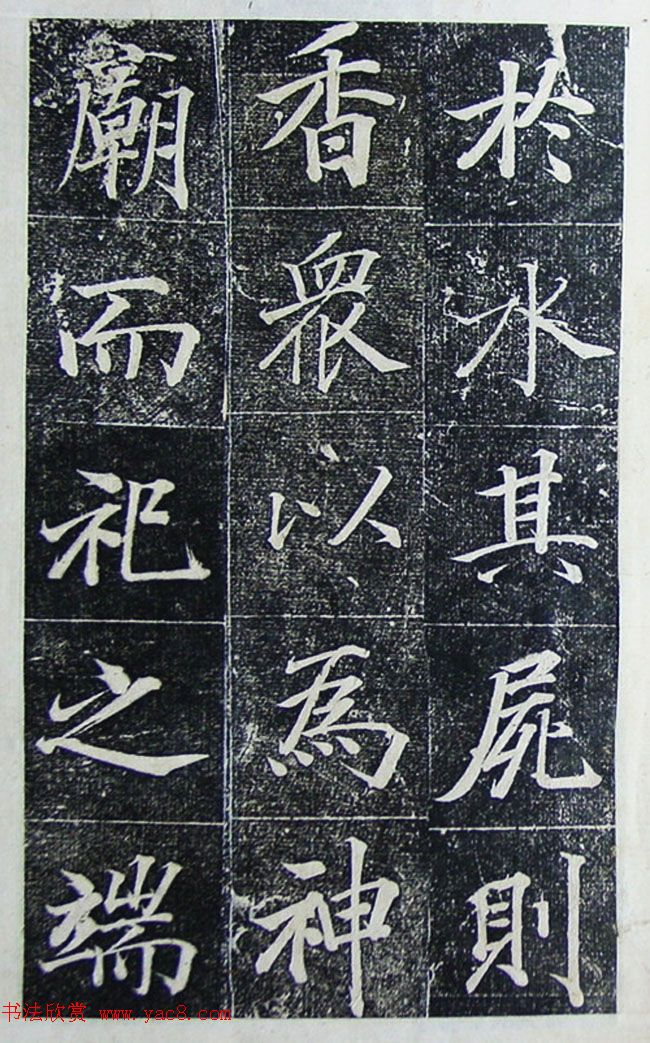 於水其屍則
香衆以爲神
廟而祀之端
书法欣赏 www.yac8.com